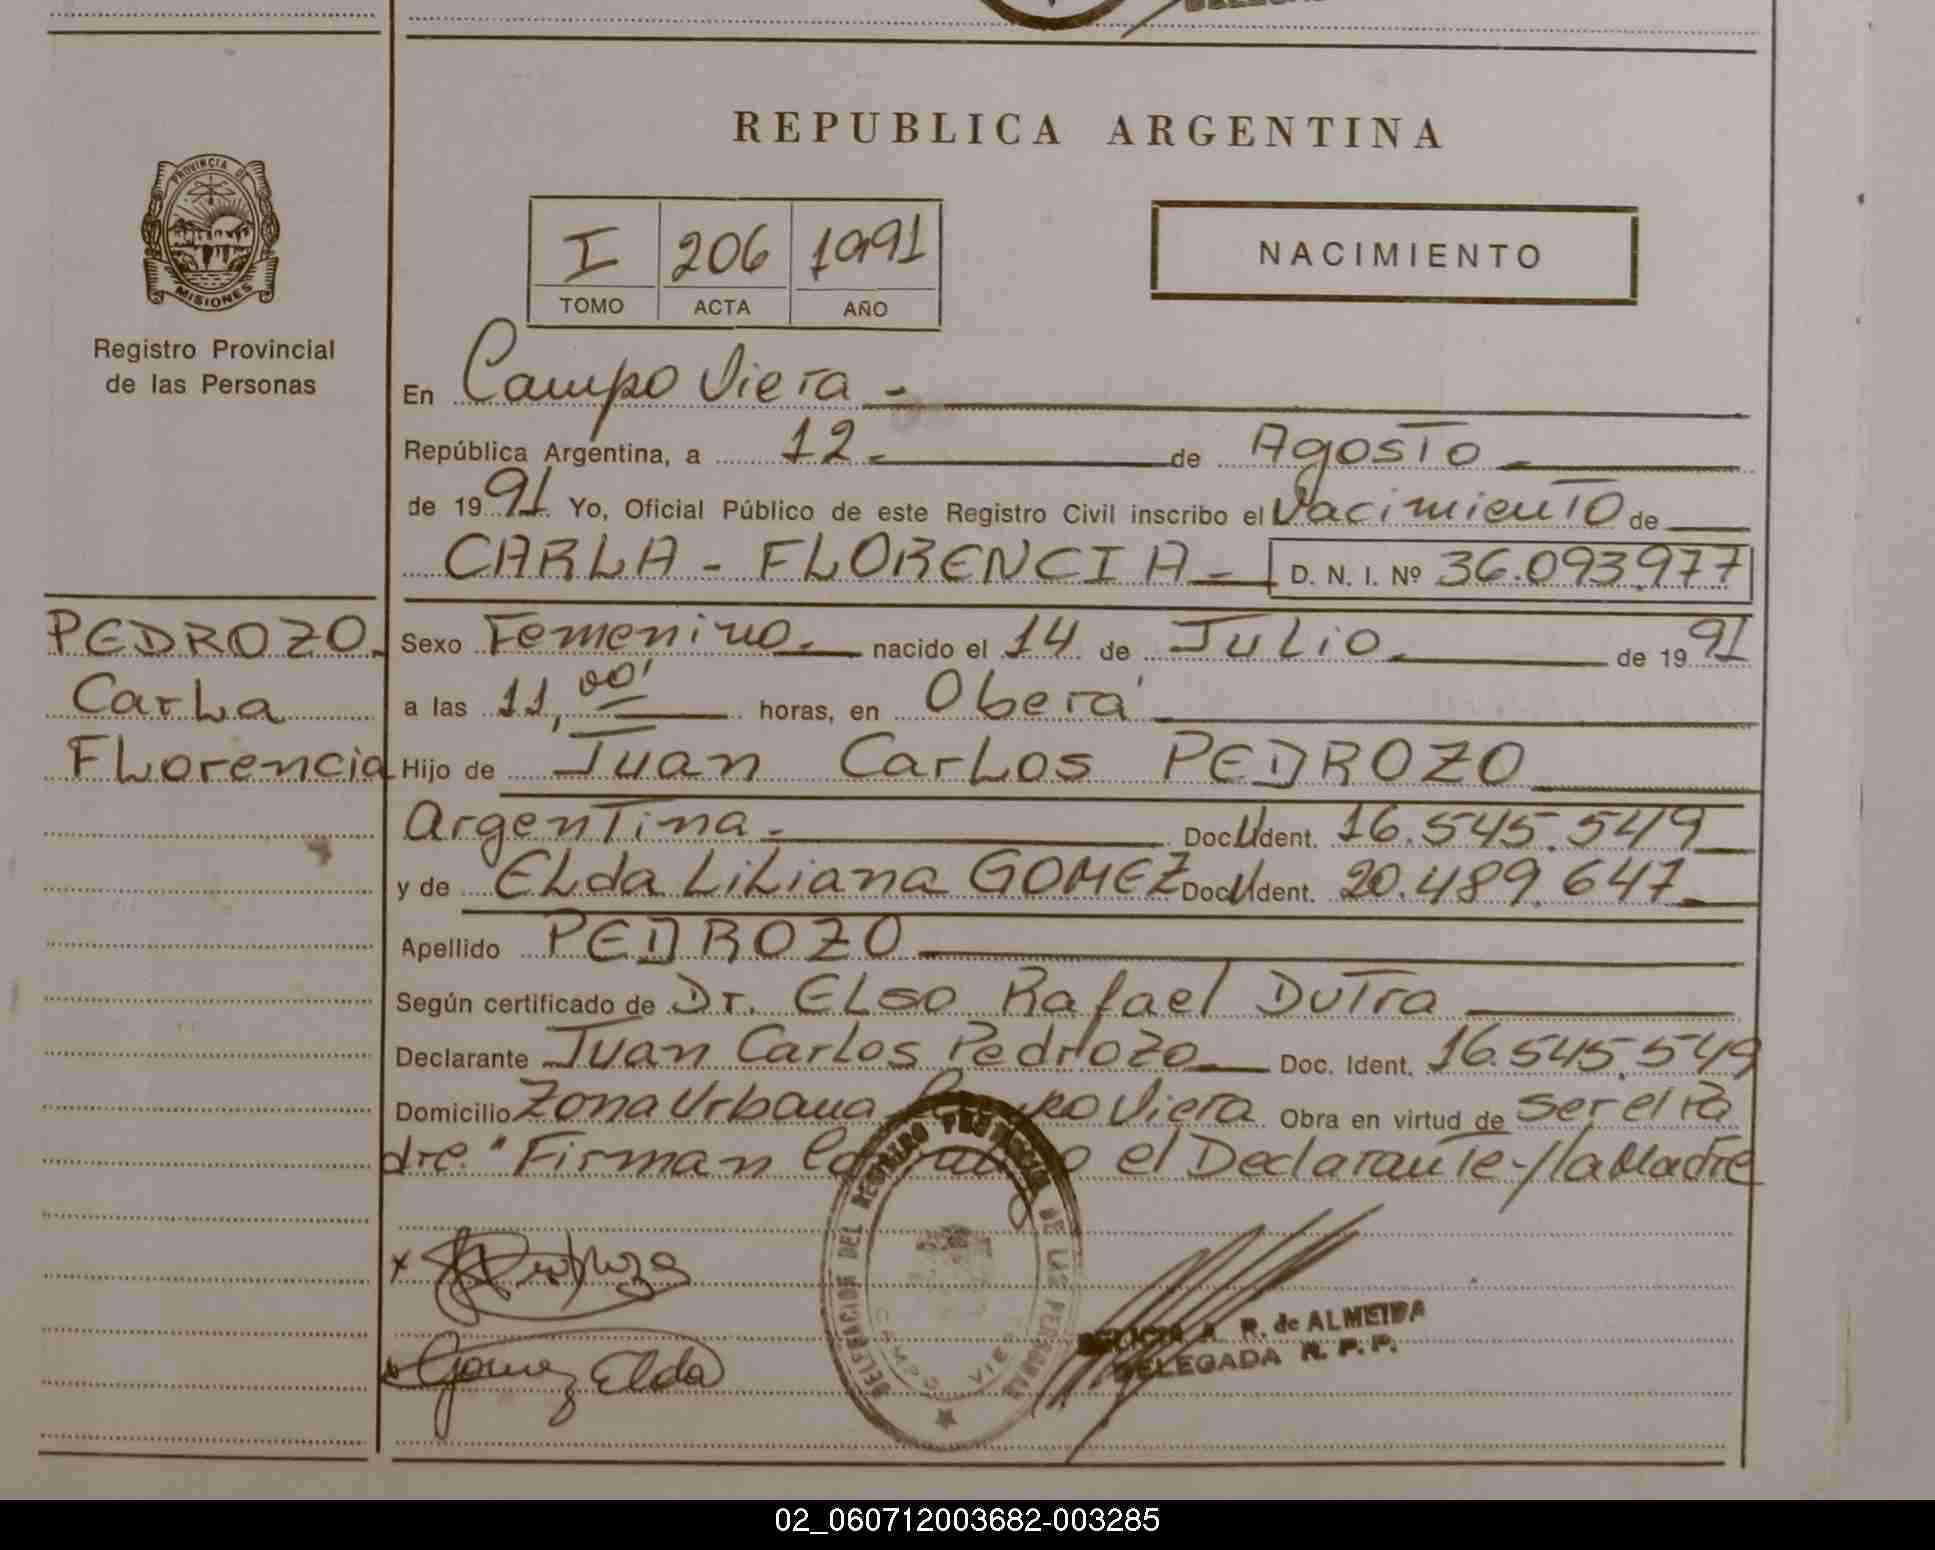 REPUBLICA ARGENTINA
PROVINCIA DE MISIONES
Registro Provincial
de las Personas
I 206 1991
TOMO ACTA AÑO
NACIMIENTO
En Campo Viera -
República Argentina, a 12 - de Agosto -
de 1991 Yo, Oficial Público de este Registro Civil inscribo el Nacimiento de
CARLA - FLORENCIA - D. N. I. Nº 36.093.977
PEDROZO
Carla
Florencia
Sexo Femenino nacido el 14 de Julio de 1991
a las 11,00' horas, en Oberá
Hijo de Juan Carlos PEDROZO
Argentina - Doc. U Ident. 16.545.549
y de Elda Liliana GOMEZ Doc. U Ident. 20.489.647
Apellido PEDROZO
Según certificado de Dr. Elso Rafael Dutra
Declarante Juan Carlos Pedrozo Doc. Ident. 16.545.549
Domicilio Zona Urbana Campo Viera Obra en virtud de ser el Pa
dre. " Firman el Declarante - y la Madre
DELEGACION DEL REGISTRO PROVINCIAL DE LAS PERSONAS
CAMPO VIERA
Gomez Elda
A. R. de ALMEIDA
DELEGADA R. P. P.
02_060712003682-003285